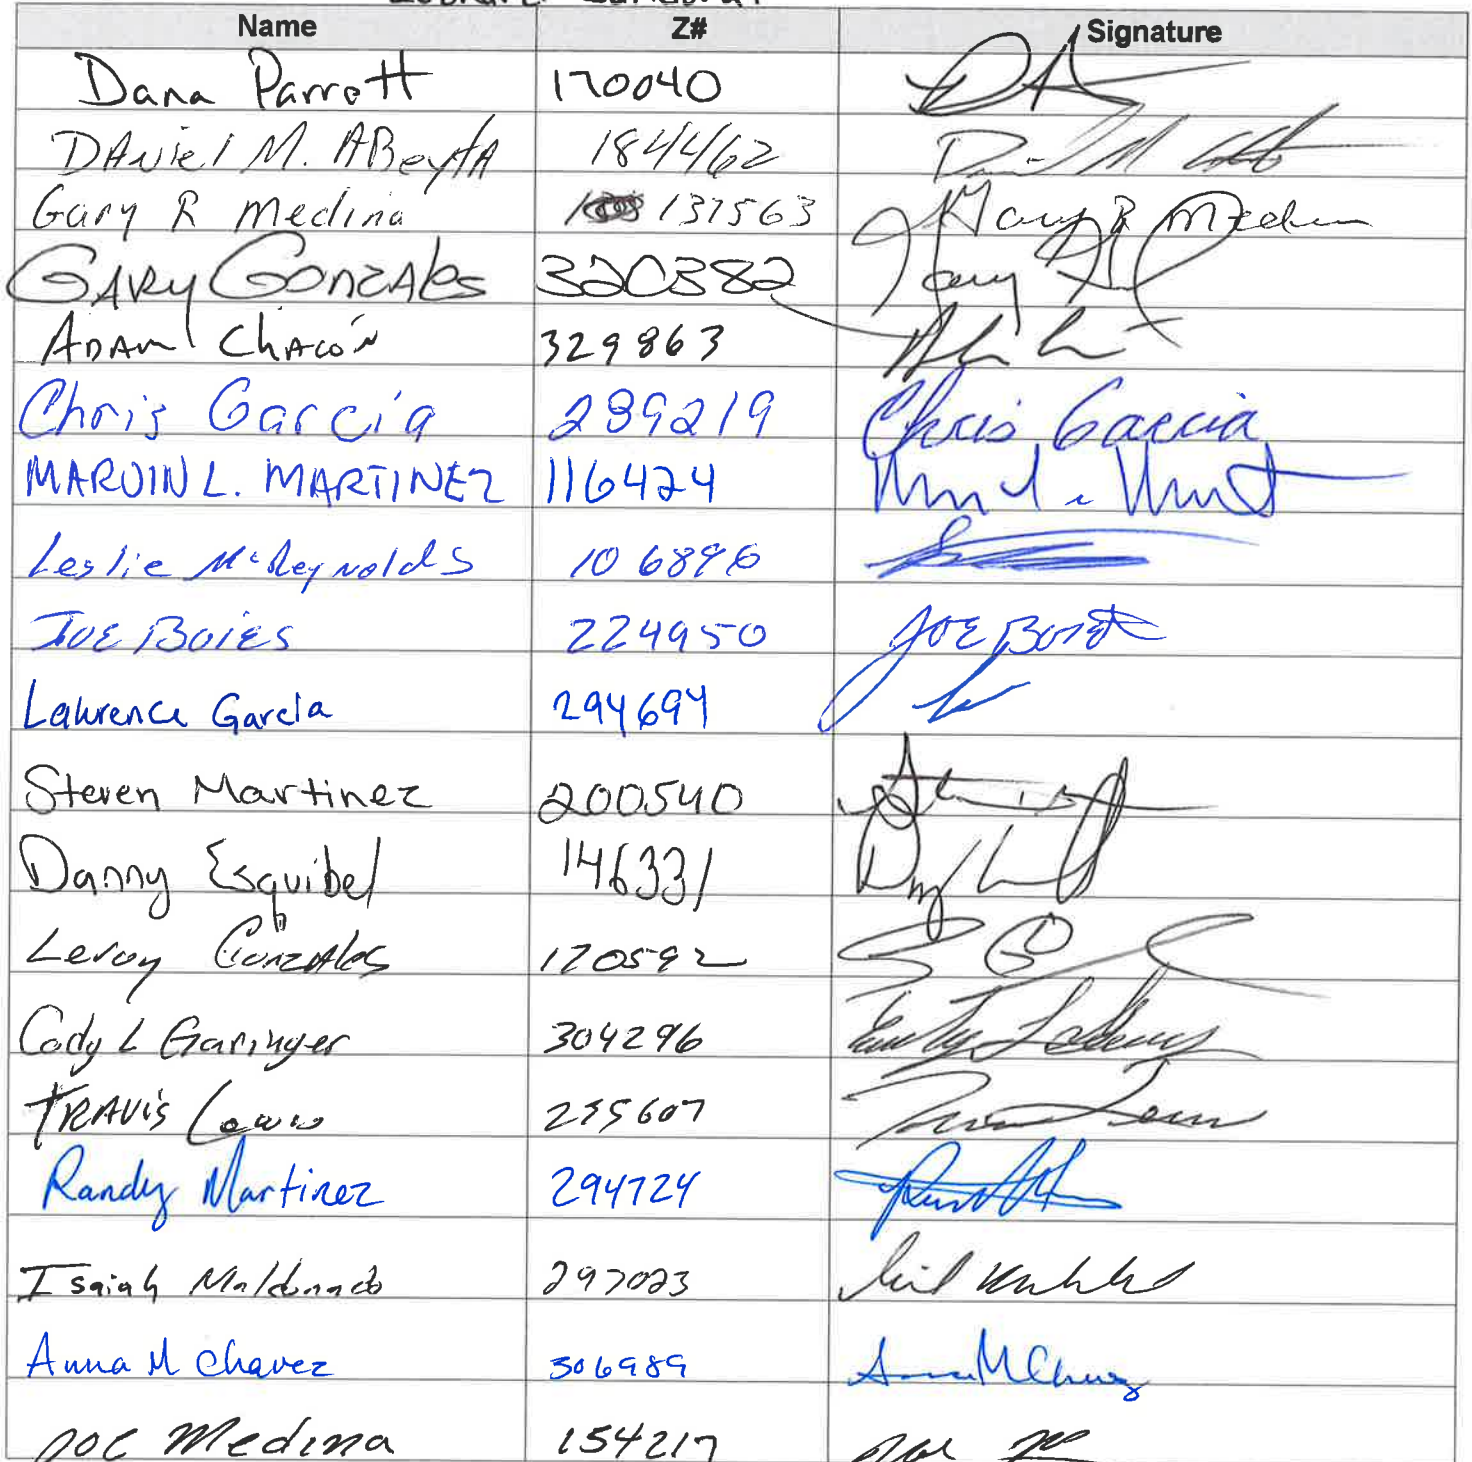 Name Z# Signature
Dana Parrott 170040
DANiel M. ABeytA 184462
Gary R Medina 137563 Gary R Medina
GARy GonzAles 320382
ADAM ChACóN 329863
Chris Garcia 289219 Chris Garcia
MARVIN L. MARTINEZ 116424
Leslie McReynolds 106896
JOE BOIES 224950 JOE BOIES
Lawrence Garcia 294694
Steven Martinez 200540
Danny Esquibel 146331
Leroy GonzAles 170592
Cody L Garinger 304296
TRAVis 235607
Randy Martinez 294724
Isaiah Maldonado 297023
Anna M Chavez 306989 Anna M Chavez
Joe Medina 154217